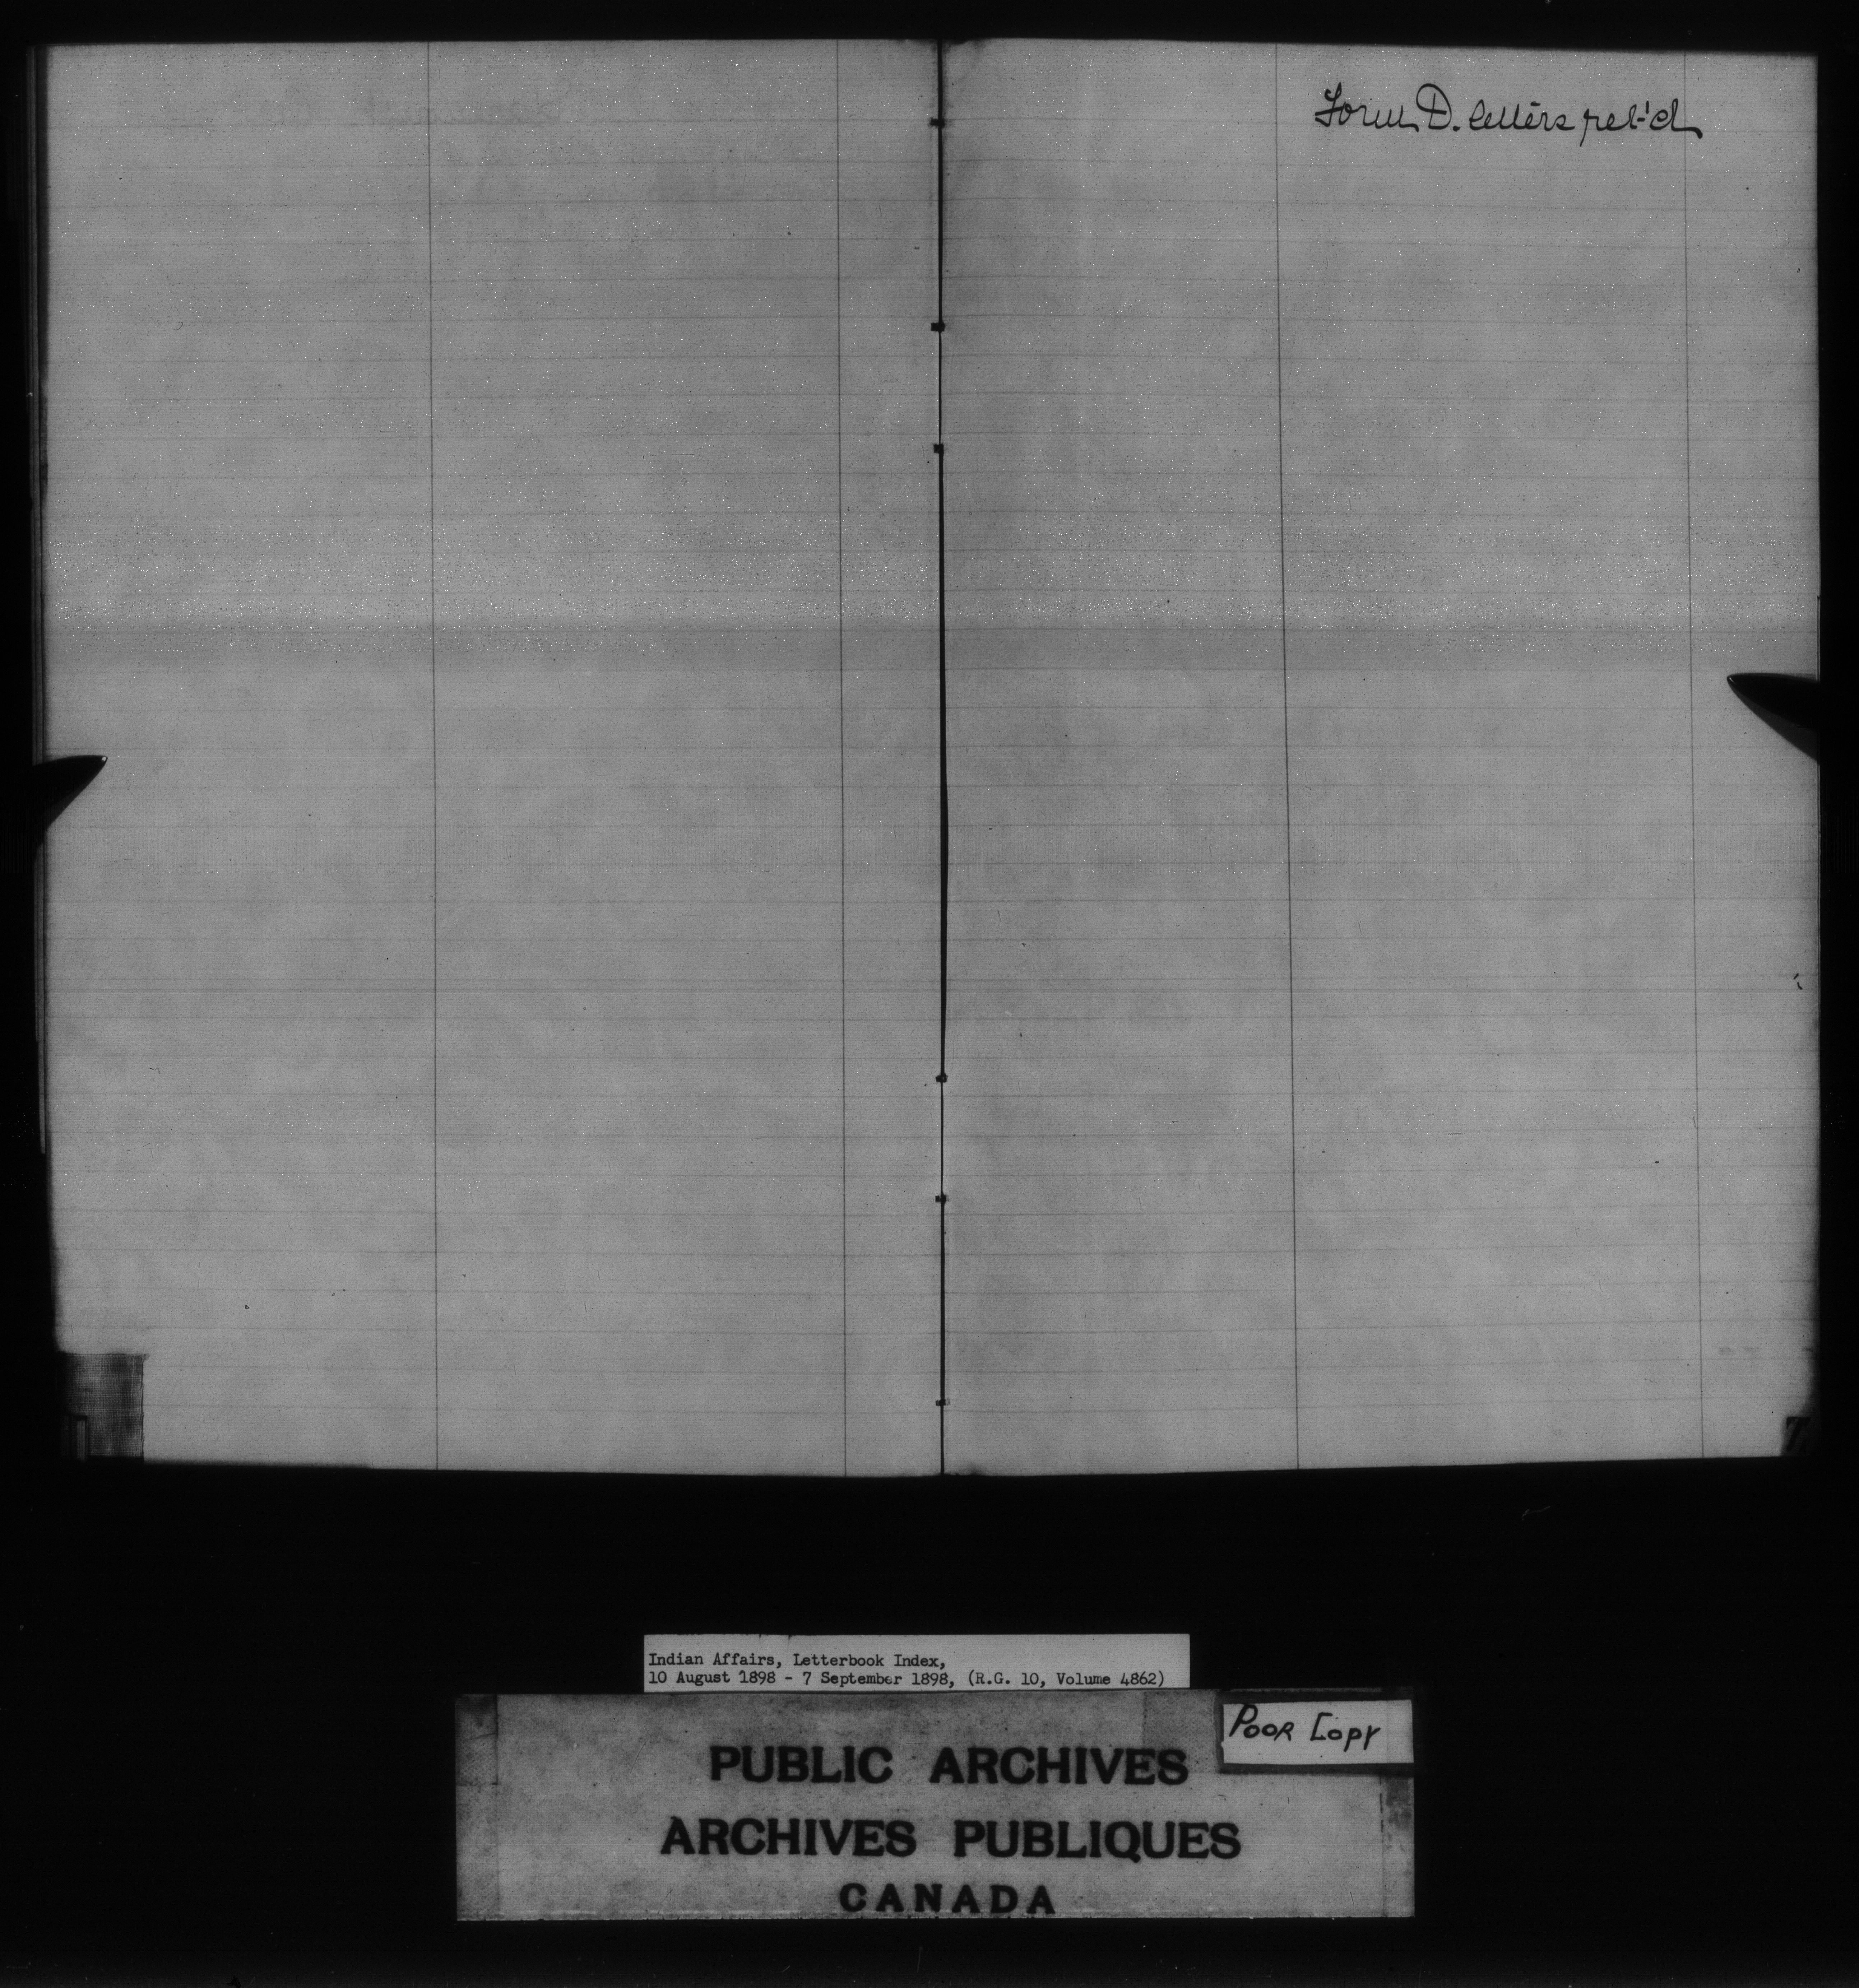 Form D. letters ret'd
Indian Affairs, Letterbook Index,
10 August 1898 - 7 September 1898, (R.G. 10, Volume 4862)
POOR COPY
PUBLIC ARCHIVES
ARCHIVES PUBLIQUES
CANADA